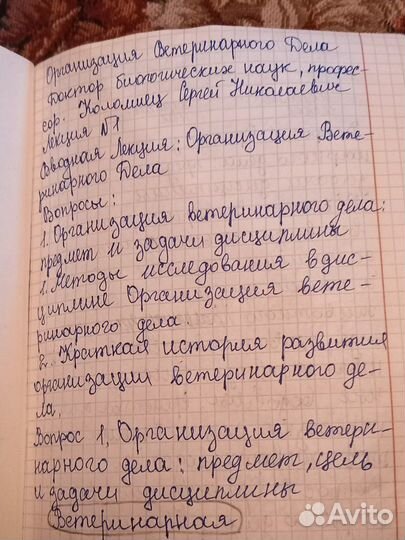 Организация Ветеринарного Дела
Доктор биологических наук, профес-
сор. Коломиец Сергей Николаевич
Лекция №1
Вводная Лекция: Организация Вете-
ринарного Дела
Вопросы:
1. Организация ветеринарного дела:
предмет и задачи дисциплины
1. Методы исследования в дис-
циплине Организация вете-
ринарного дела.
2. Краткая история развития
организации ветеринарного де-
ла.
Вопрос 1. Организация ветери-
нарного дела: предмет, цель
и задачи дисциплины
Ветеринарная
Avito